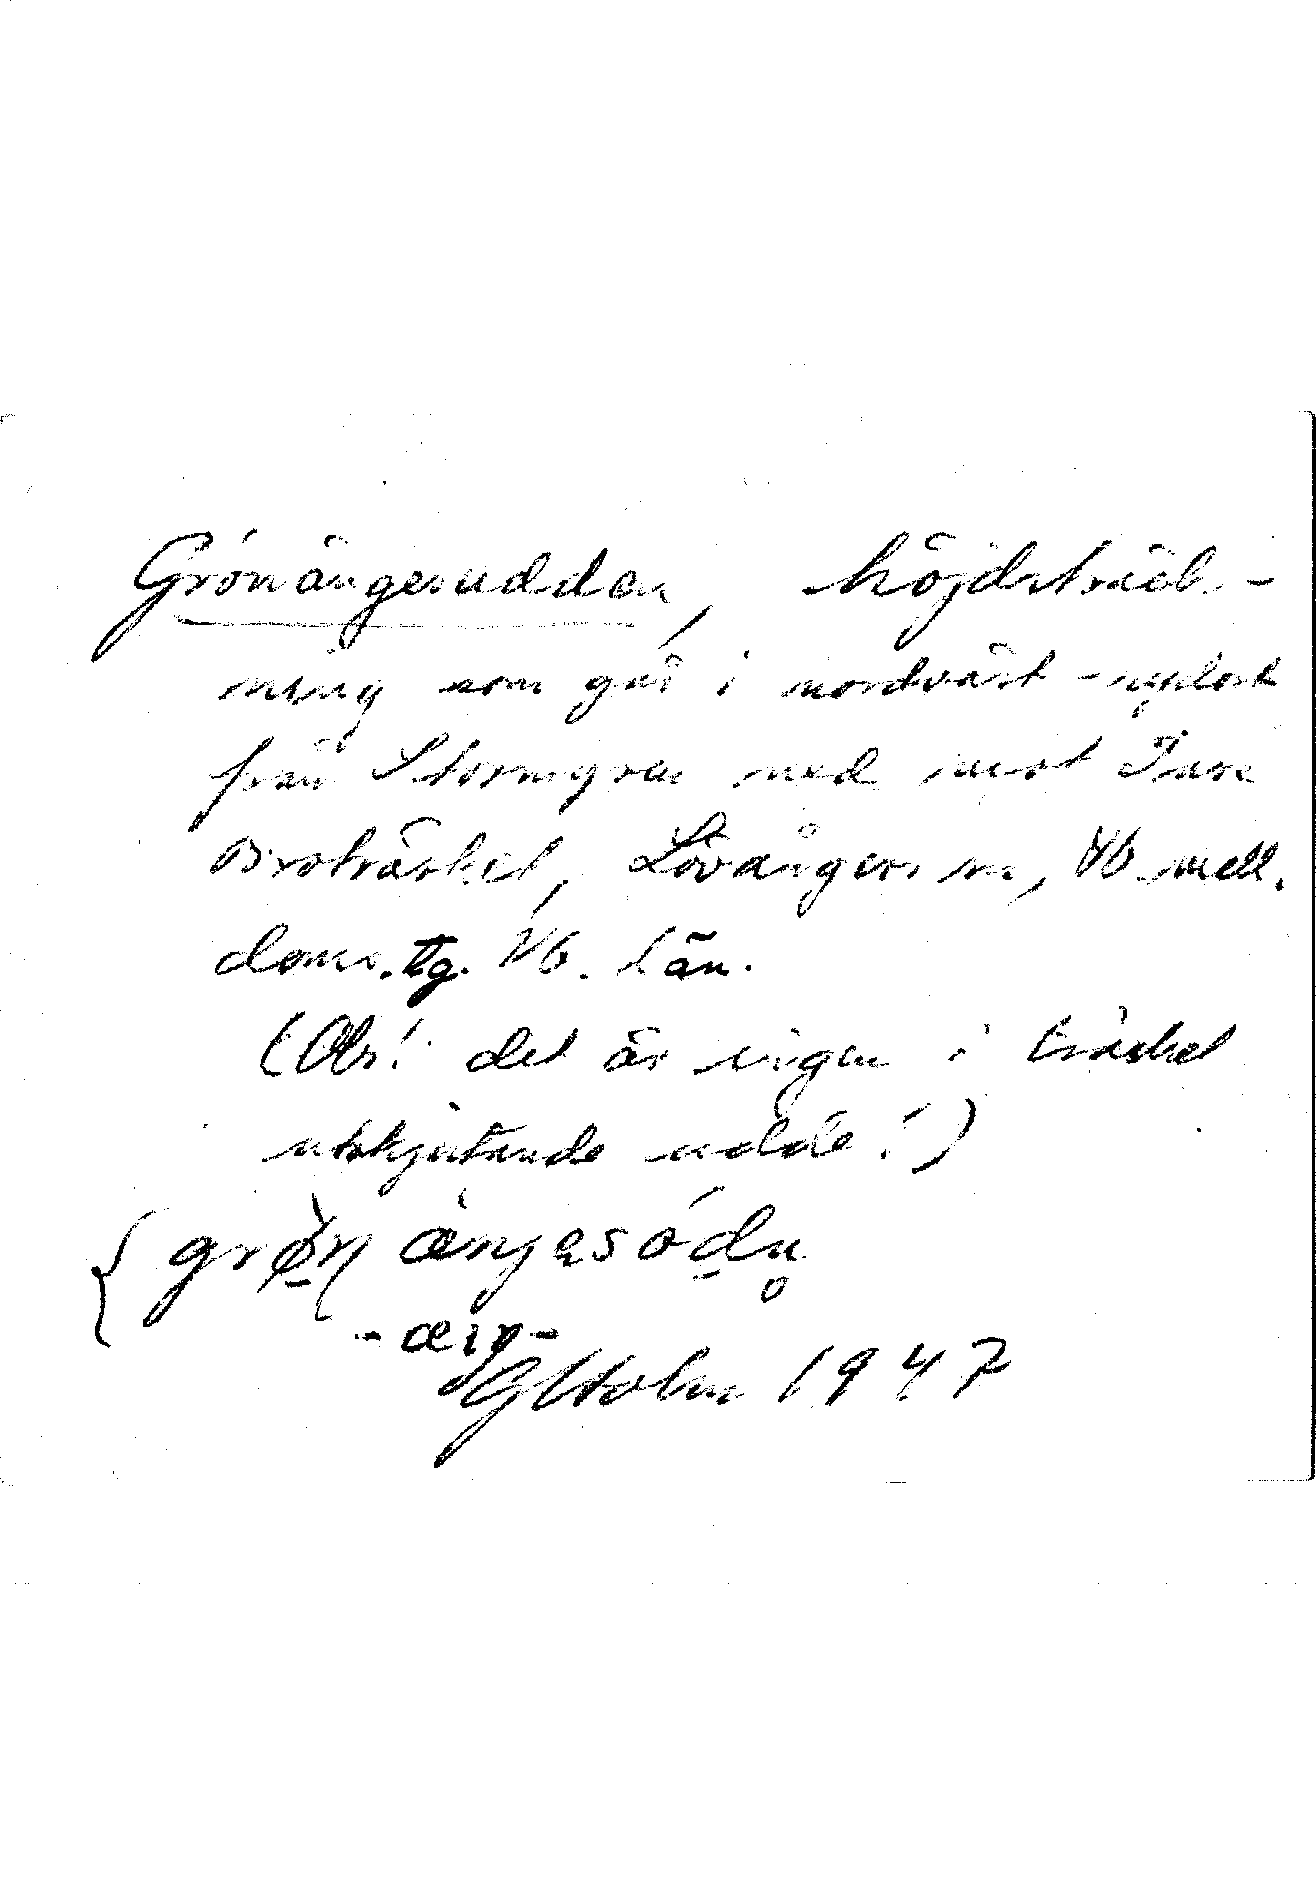 Grönängesudden, höjdsträck-
ning som går i nordväst - sydost
från Stormyran ned mot Inre
Broträsket, Lövångers sn, Vb mell.
doms.tg. Vb. Län.
(Obs! det är ingen i träsket
utskjutande udde!)
{ grø̀n ængesódn̥
-æŋ-
GHolm 1947